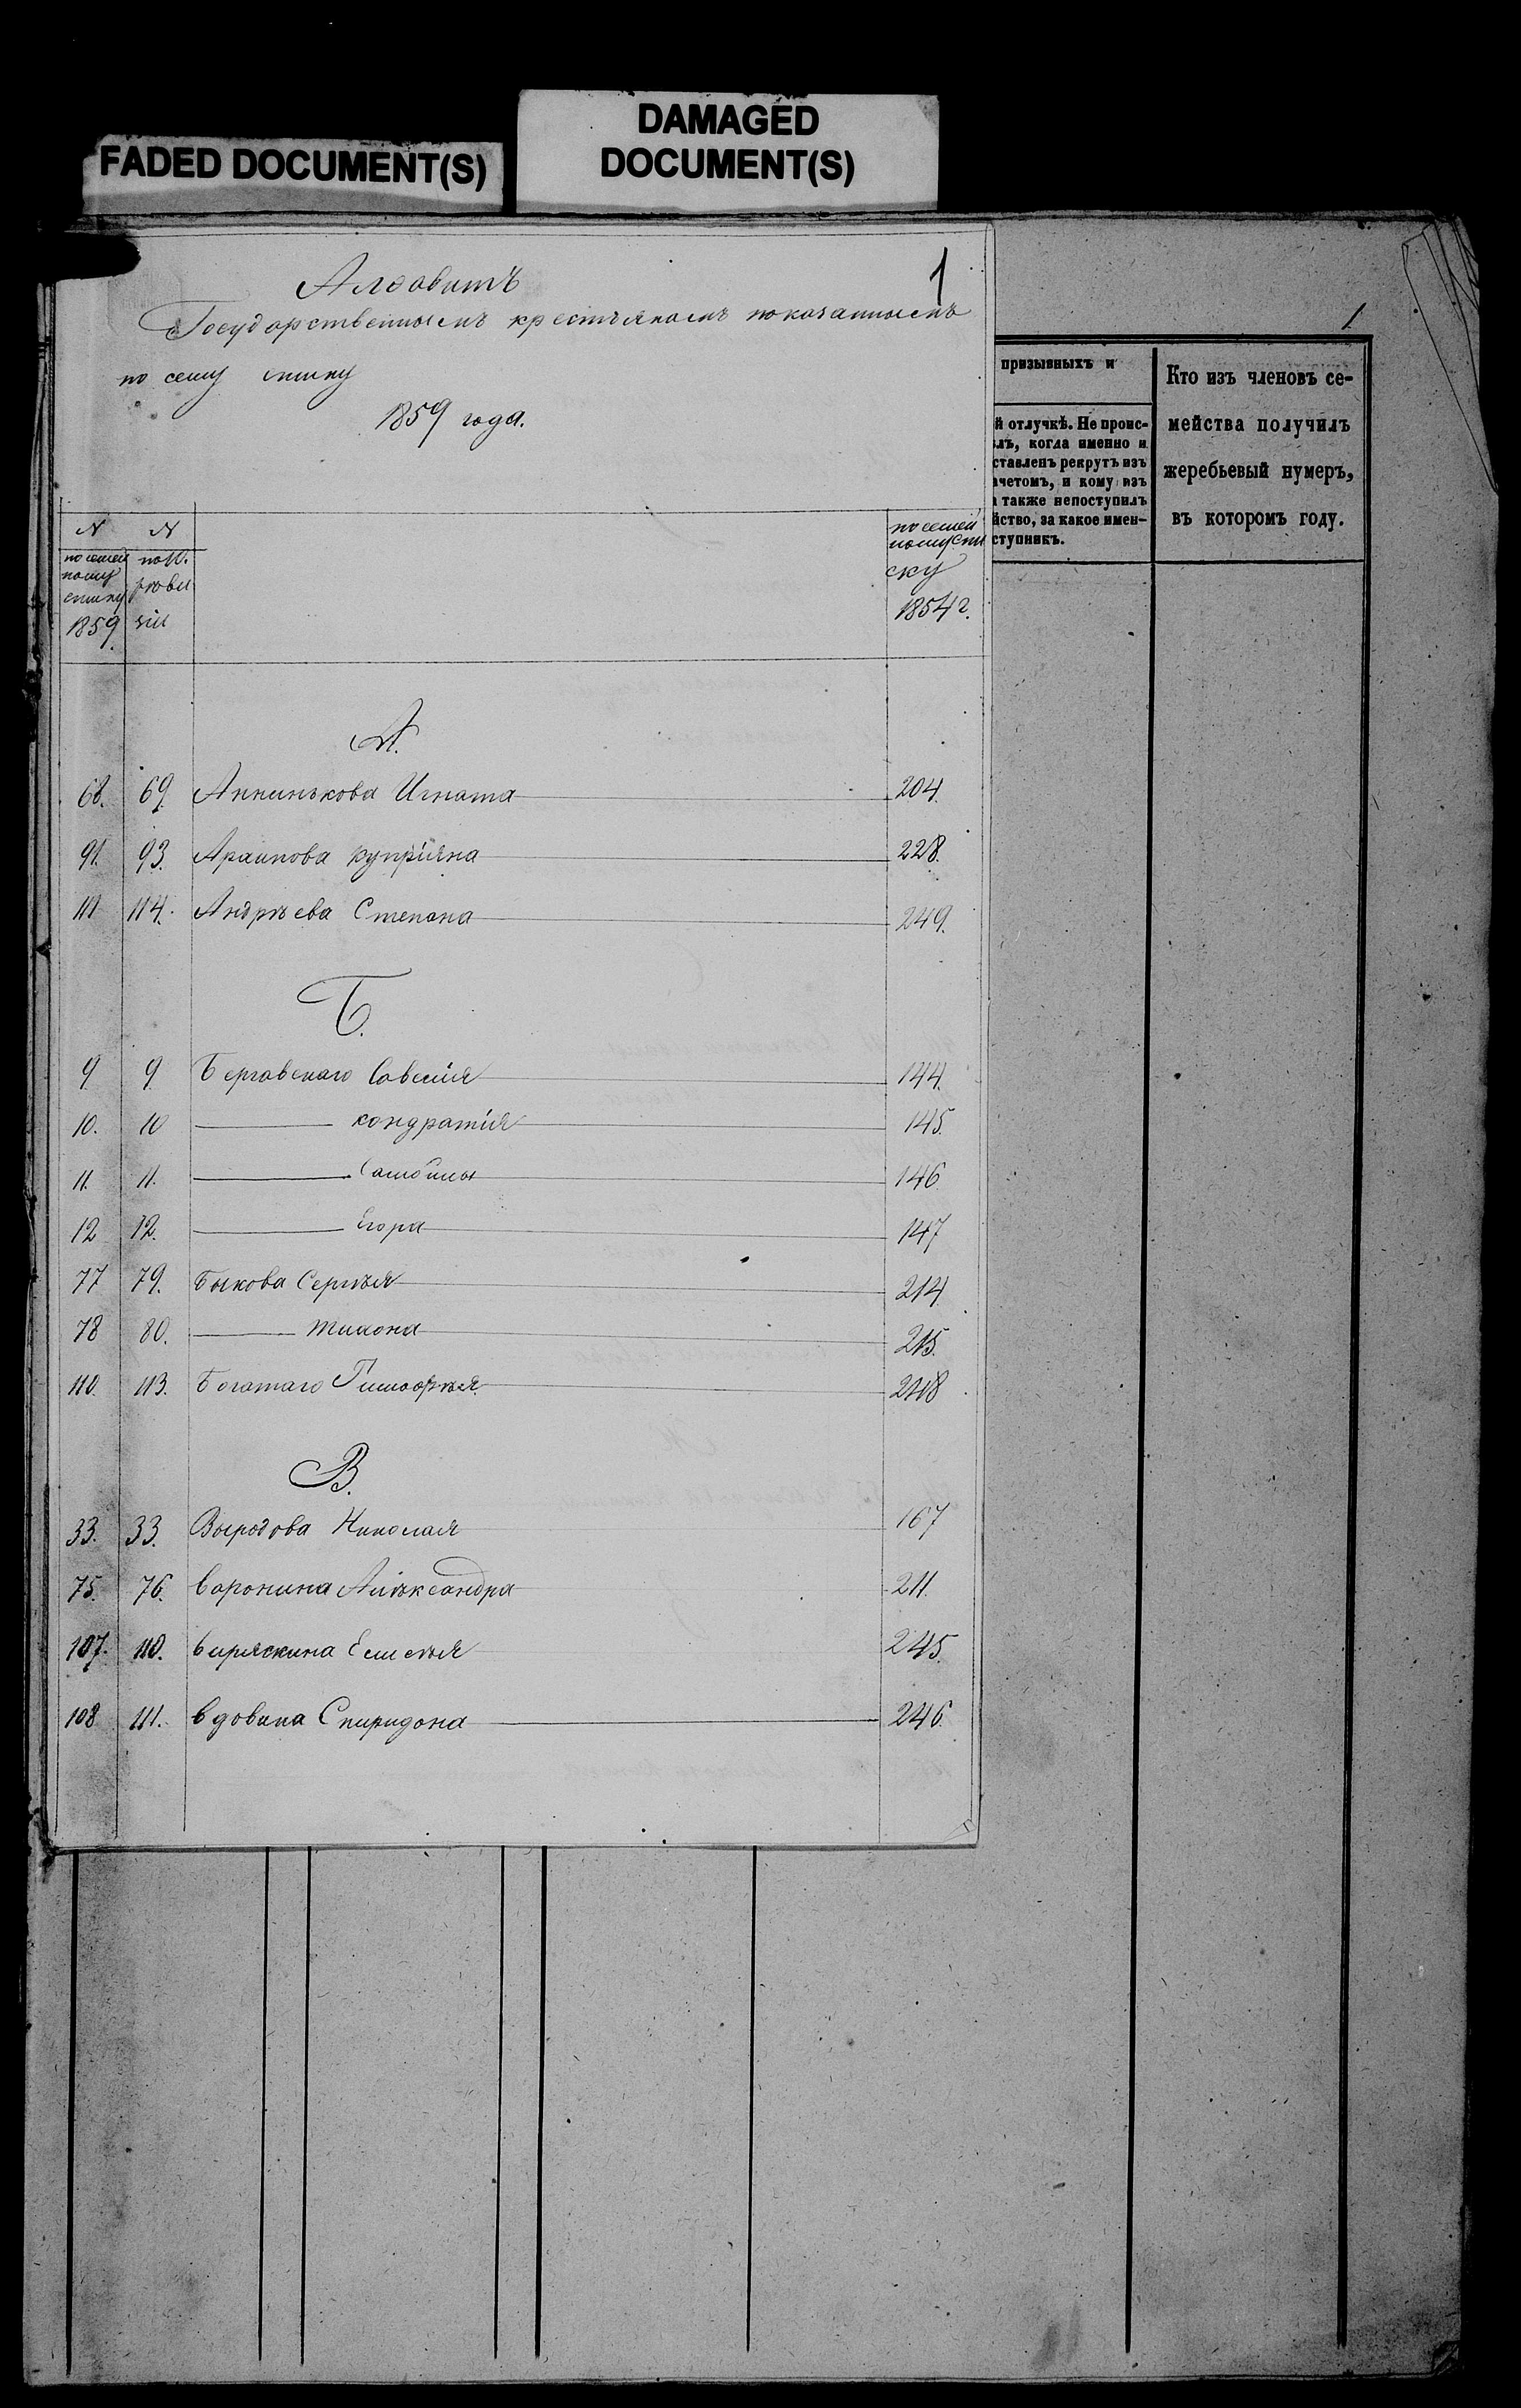 FADED DOCUMENT(S)
DAMAGED
DOCUMENT(S)
1
Алфавитъ
Государственнымъ крестьянамъ показаннымъ
по сему списку
1859 года.
1
призывныхъ и
й отлучкѣ. Не проис-
лъ, когда именно и
ставленъ рекрутъ изъ
ачетомъ, и кому изъ
а также непоступилъ
йство, за какое имен-
ступникъ.
Кто изъ членовъ се-
мейства получилъ
жеребьевый нумеръ,
въ которомъ году.
№ по семей ному списку 1859
№ по Х. реви зіи
по семей ному спи ску 1854 г.
А.
68. 69. Аннинькова Игната 204.
91. 93. Арапова Купріяна 228.
111 114. Андрѣева Степана 249.
Б.
9 9 Савелія 144.
10. 10 Кондратія 145.
11. 11. 146
12 12. Егора 147
77 79. Быкова Сергѣя 214
78 80. Тихона 215.
110. 113. Богатаго Тимофѣя 248
В.
33. 33. Выродова Николая 167
75. 76. Воронина Алѣксандра 211.
107. 110. Виряскина Елисѣя 245.
108 111. Вдовина Спиридона 246.